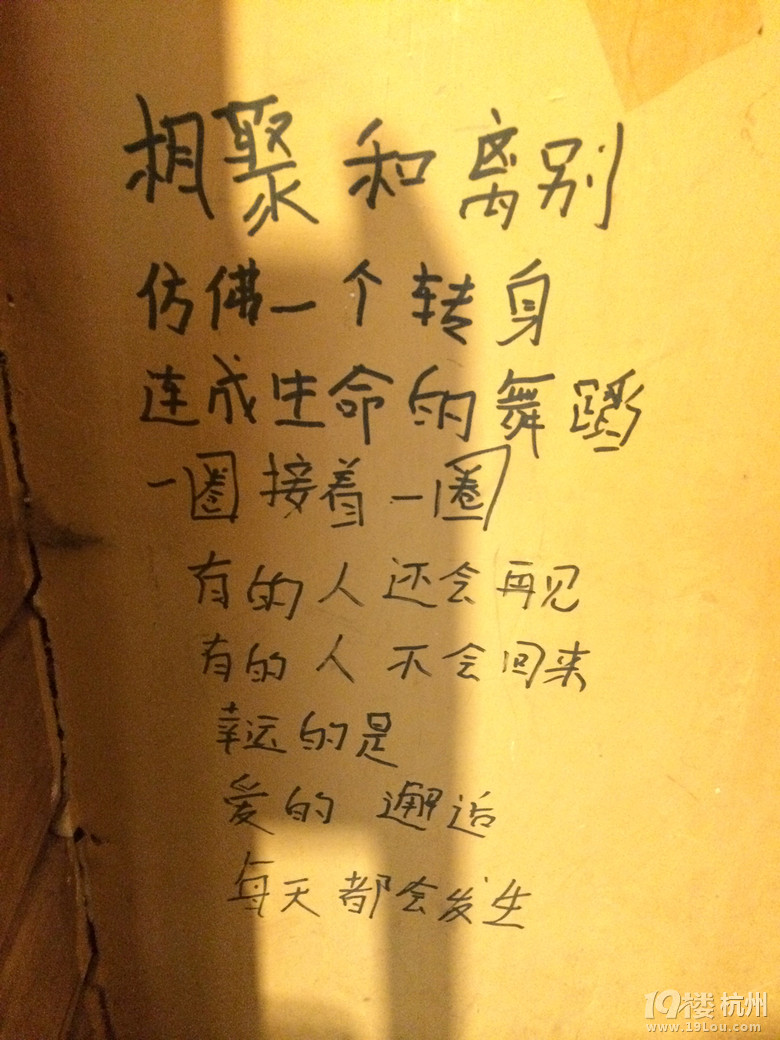 相聚和离别
仿佛一个转身
连成生命的舞蹈
一圈接着一圈
有的人还会再见
有的人不会回来
幸运的是
爱的 邂逅
每天都会发生
19楼 杭州
www.19lou.com